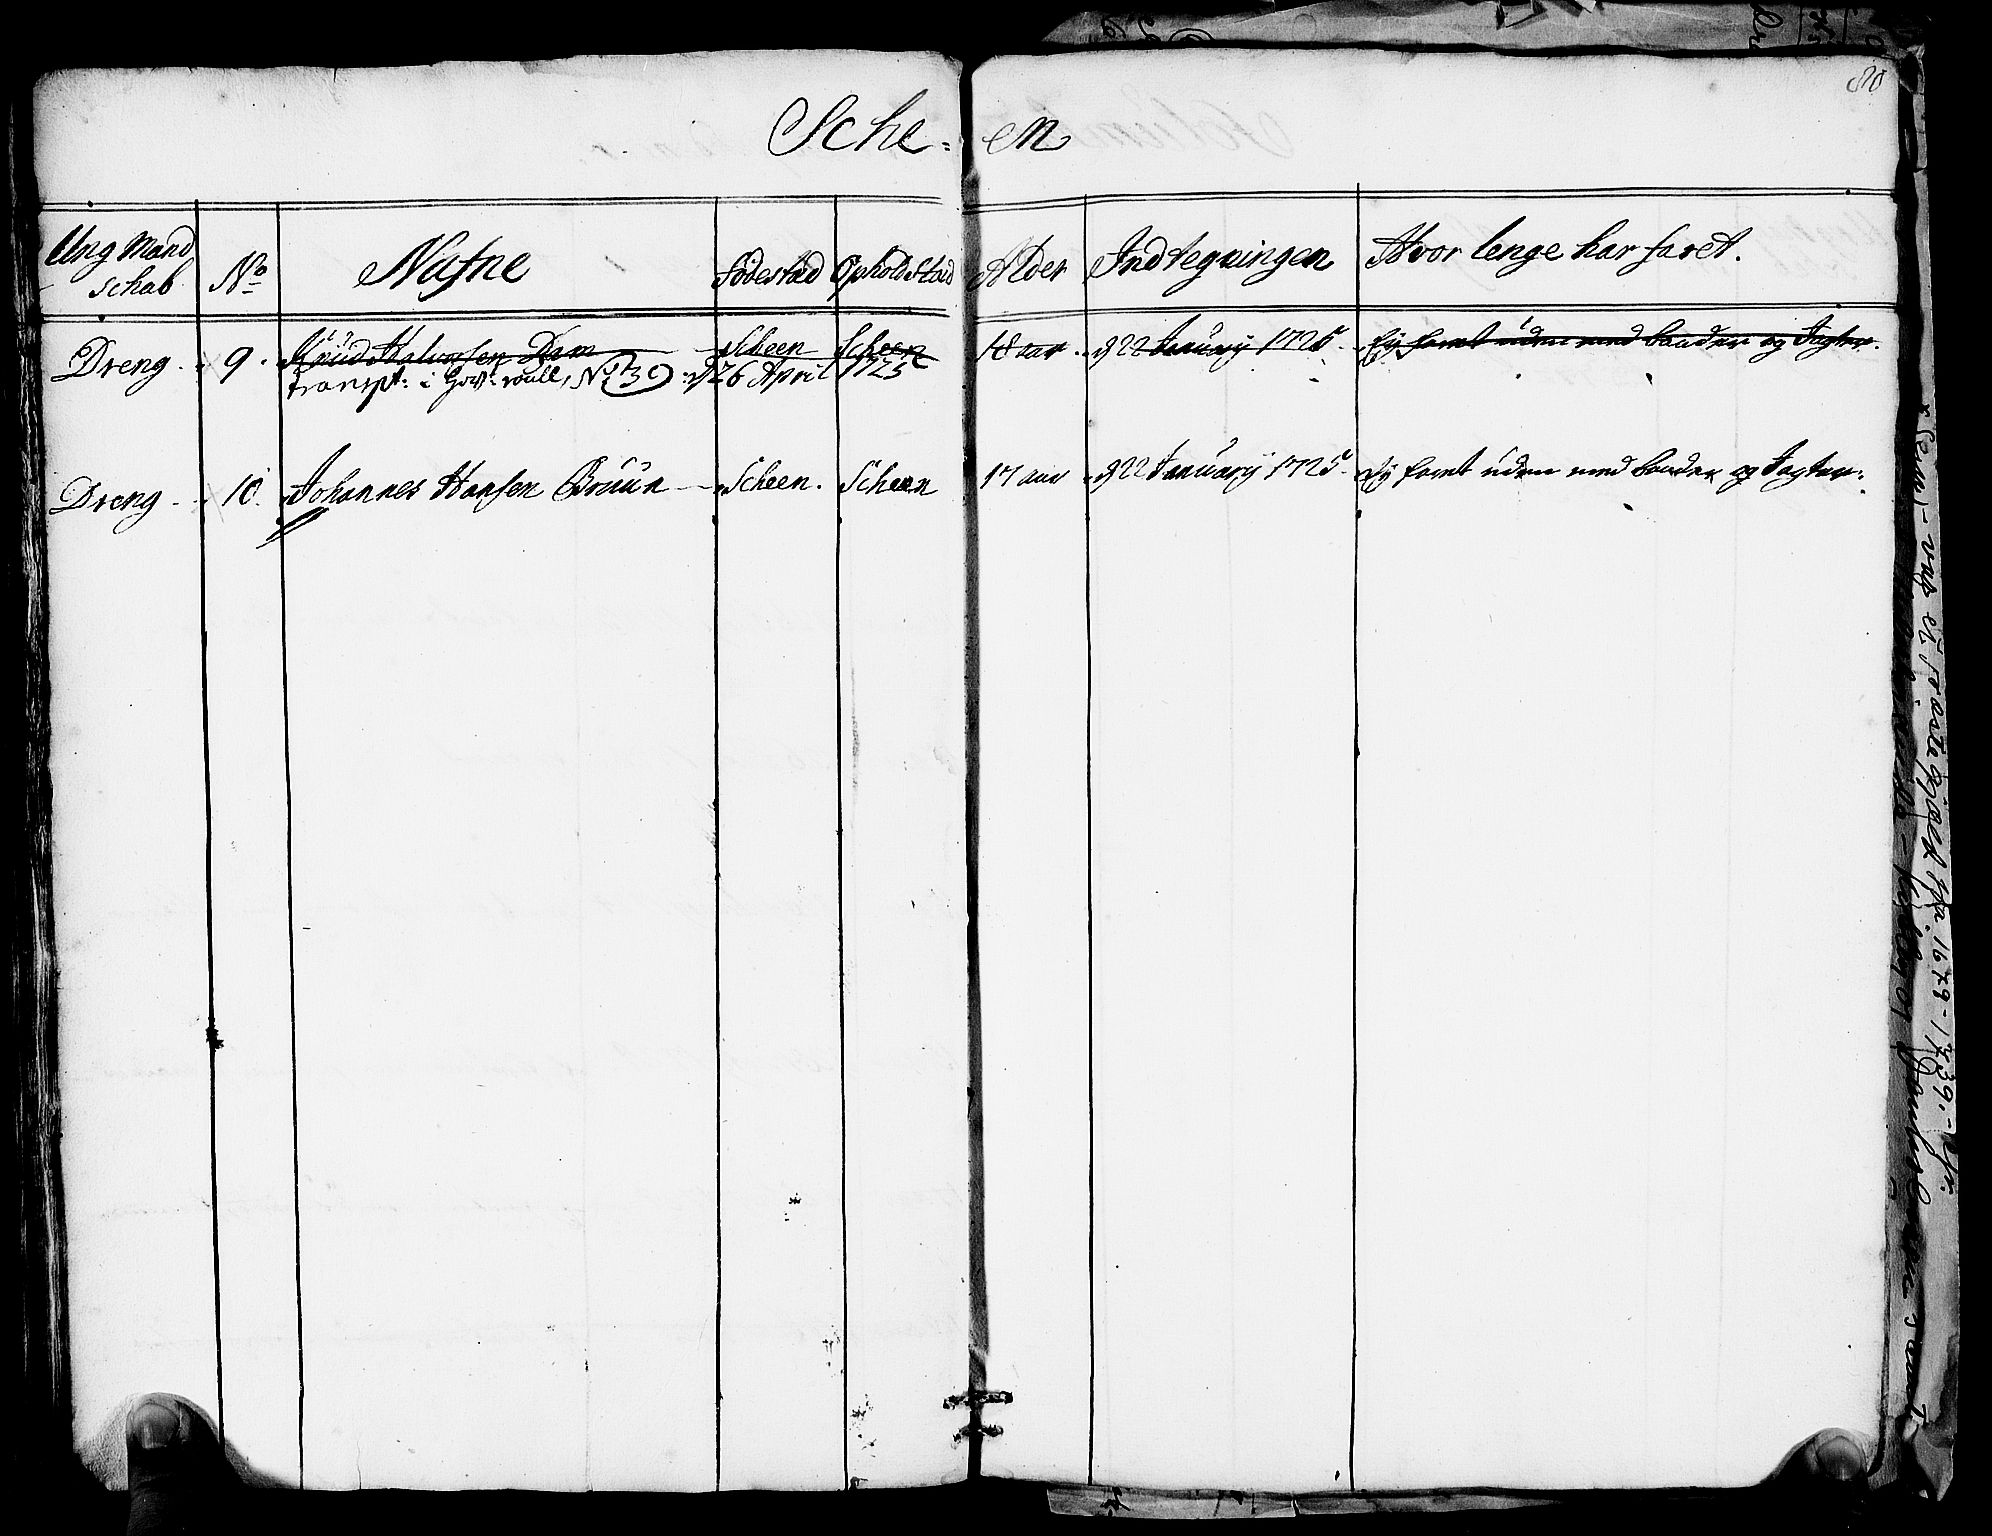 80
Sche= en
Ung Mand schab No Nafne Födestad Ophold Stad Alder Indtegningen Hvor lenge har faret.
Dreng 9. Knüd Halvorsen Dam Scheen Scheen 18 aar d 22 January 1725 Ey faret uden med baader og Jagter.
transpt: i Hov: roull, No 139 d 26 April 1725
Dreng 10. Johannes Hansen Bruün Scheen. Scheen 17 aar d 22 January 1725 Ey faret uden med baader og Jagter.
1679-1739.